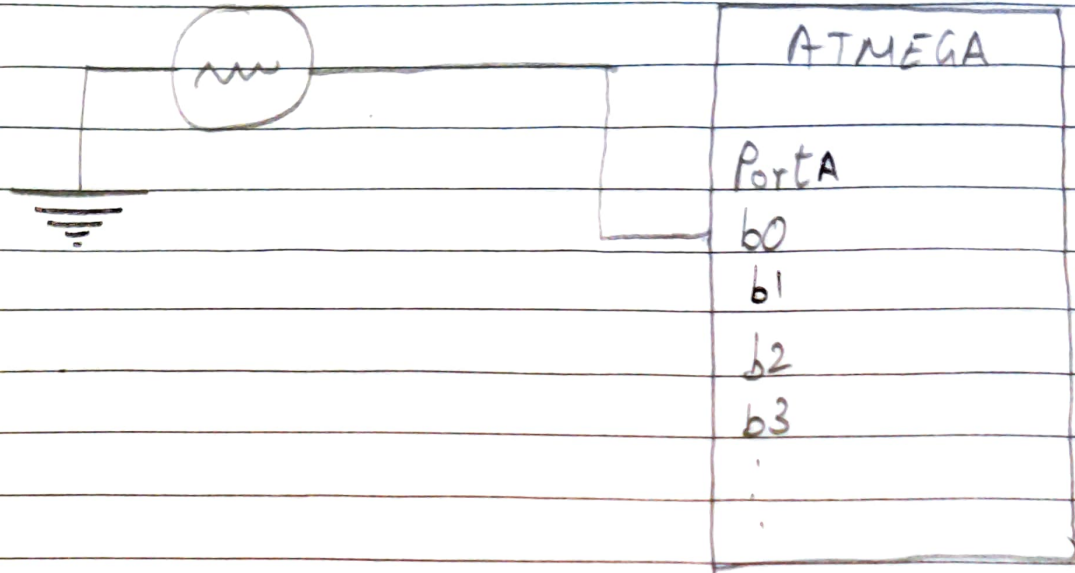 ATMEGA
PortA
b0
b1
b2
b3